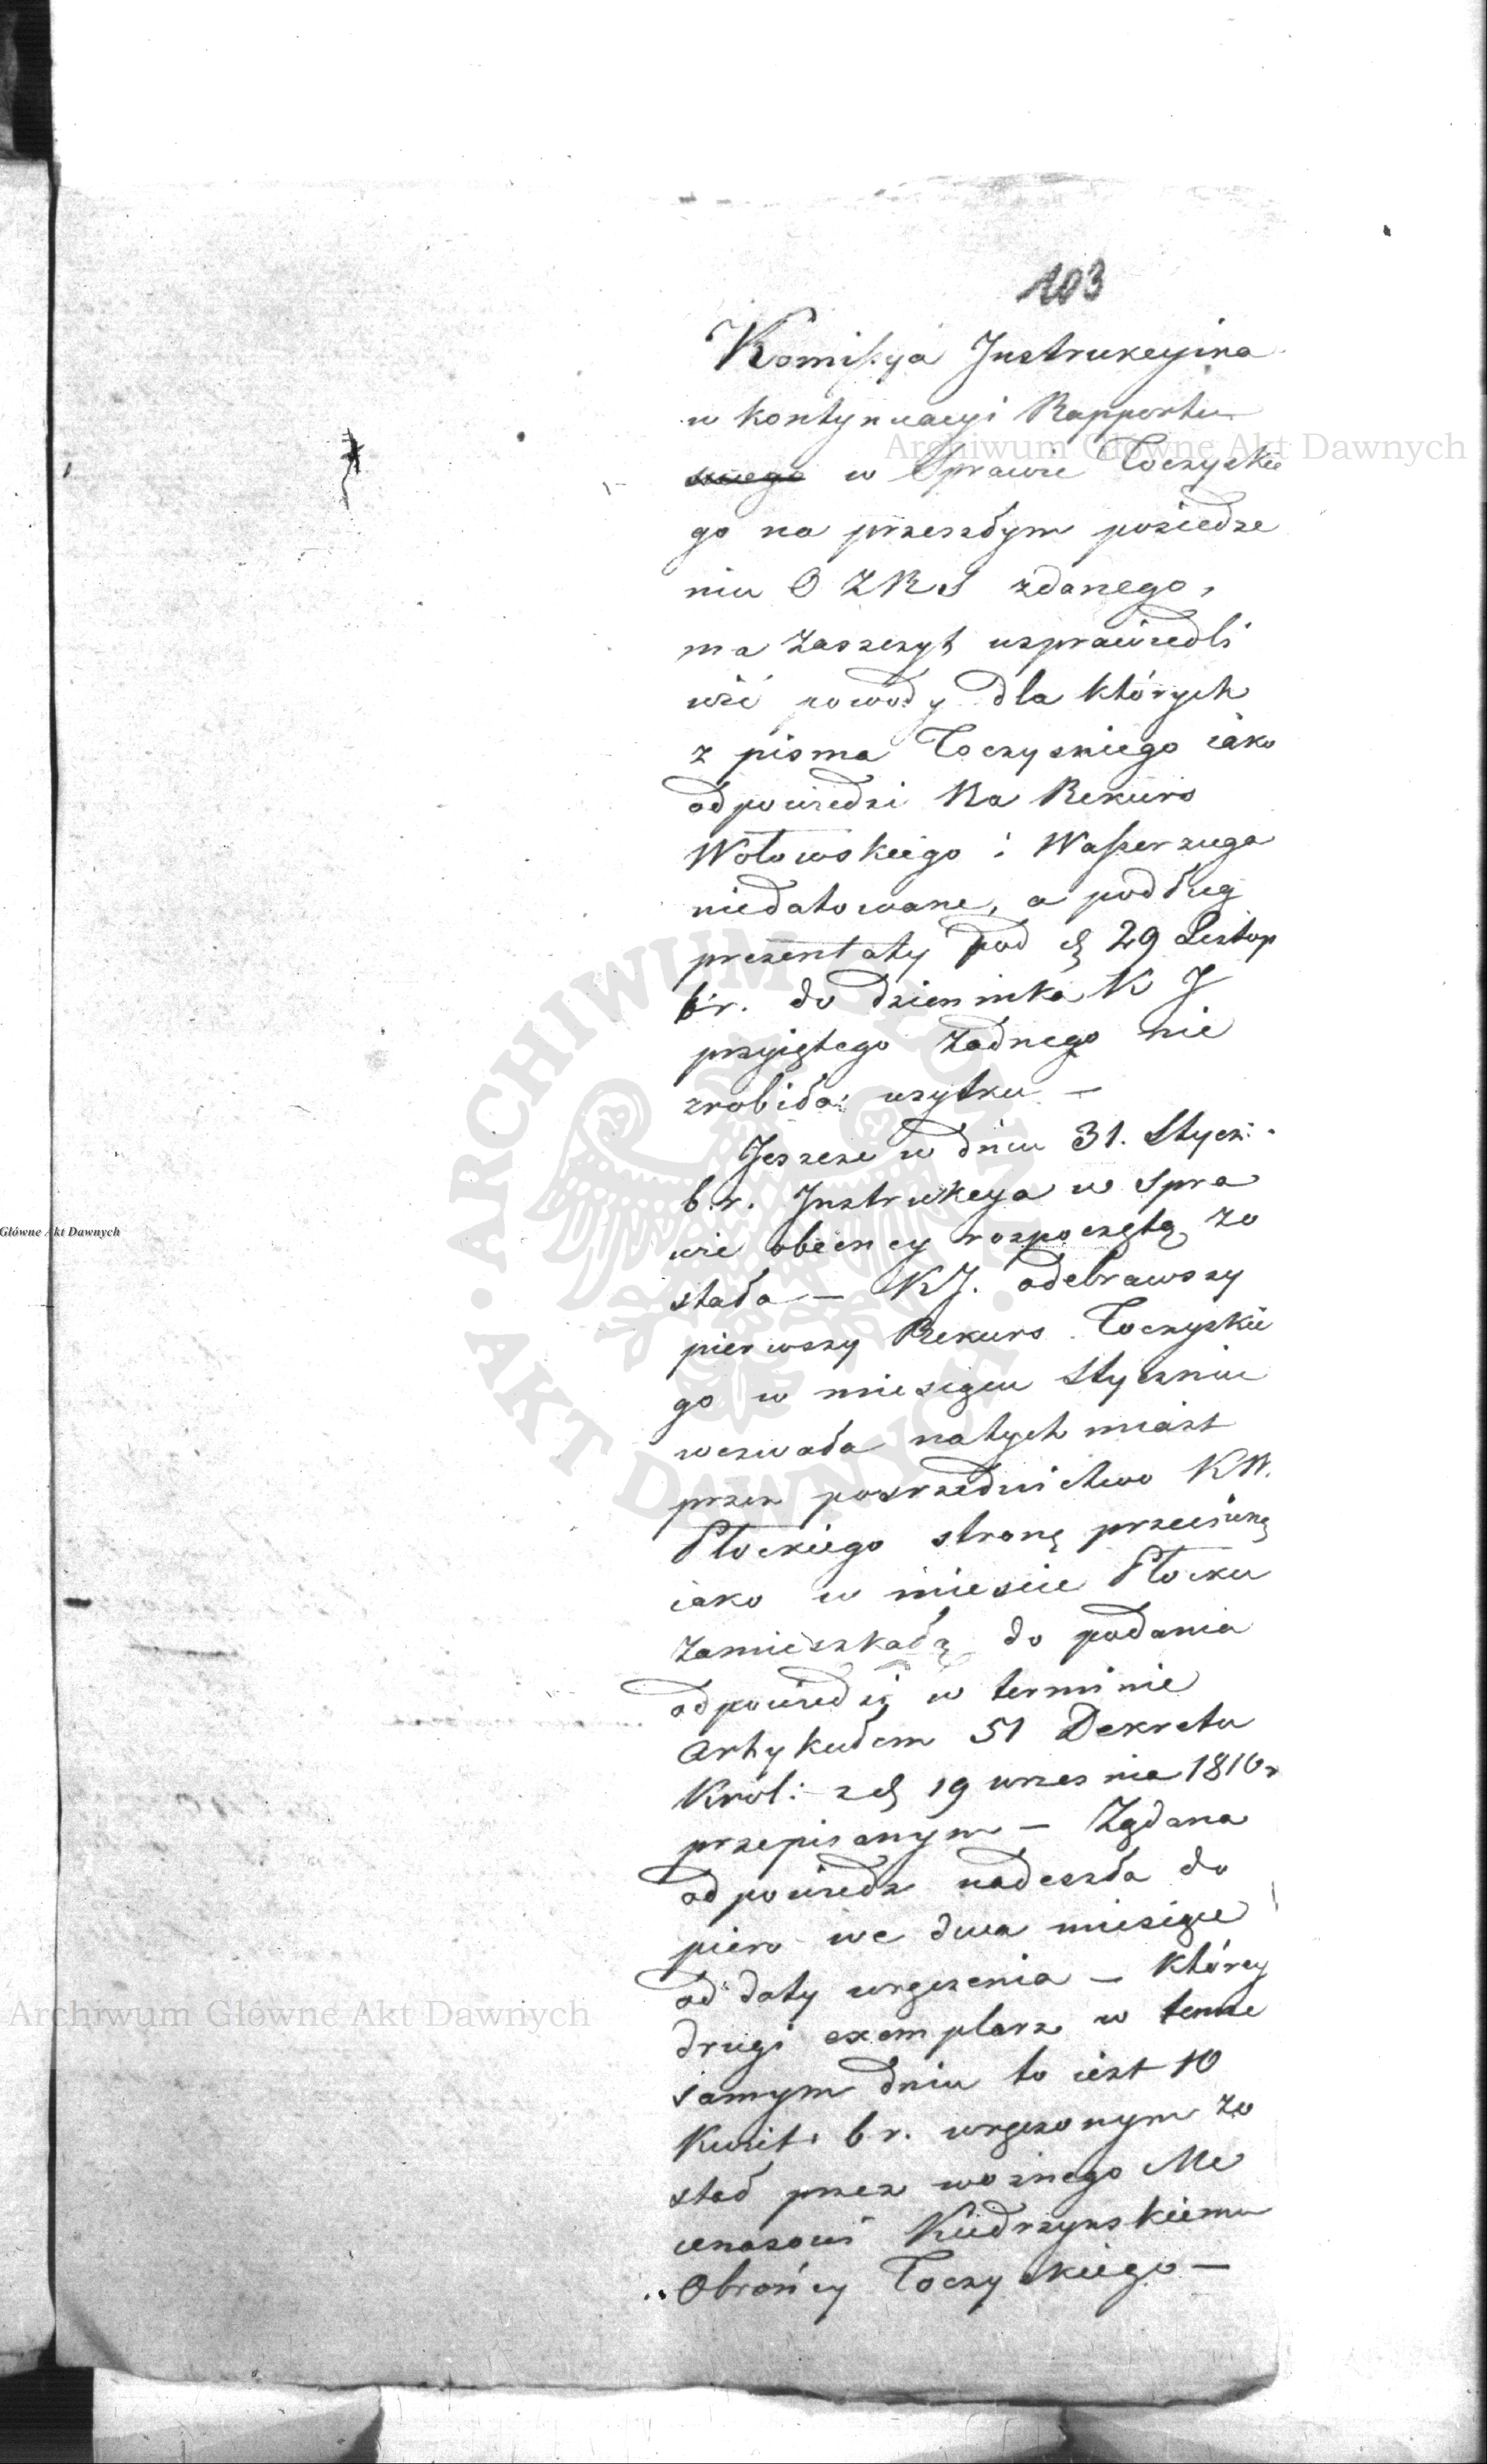 103
Komissya Instrukcyina
w kontynuacyi Rapportu
swego w Sprawie Toczyskie
go na przeszłym posiedze
niu O Z R S zdanego,
ma zaszczyt usprawiedli
wić powody dla których
z pisma Toczyskiego iako
odpowiedzi Na Rekurs
Wołowskiego i Wasserzuga
niedatowane, a podług
prezentaty pod d 29 Listop
b.r. do dziennika K J
przyiętego żadnego nie
zrobiła użytku —
Jeszcze w dniu 31. Stycz:
b.r. Instrukcya w spra
wie obecney rozpoczętą zo
stała — KJ. odebrawszy
pierwszy Rekurs Toczyskie
go w miesiącu Styczniu
wezwała natychmiast
przez pośrzednictwo KW.
Płockiego stronę przeciwną
iako w mieście Płocku
zamieszkałą do podania
odpowiedzi w terminie
Artykułem 51 Dekretu
Król: z d 19 września 1810 r
przepisanym — Żądana
odpowiedz nadeszła do
piero we dwa miesiące
od daty wręczenia — którey
drugi exemplarz w temże
samym dniu to iest 10
Kwiet. b.r. wręczonym zo
stał przez woźnego Me
cenasowi Kiedrzyńskiemu
Obrońcy Toczyskiego —
Archiwum Główne Akt Dawnych
Główne Akt Dawnych
ARCHIWUM GŁÓWNE · AKT DAWNYCH ·
Archiwum Główne Akt Dawnych